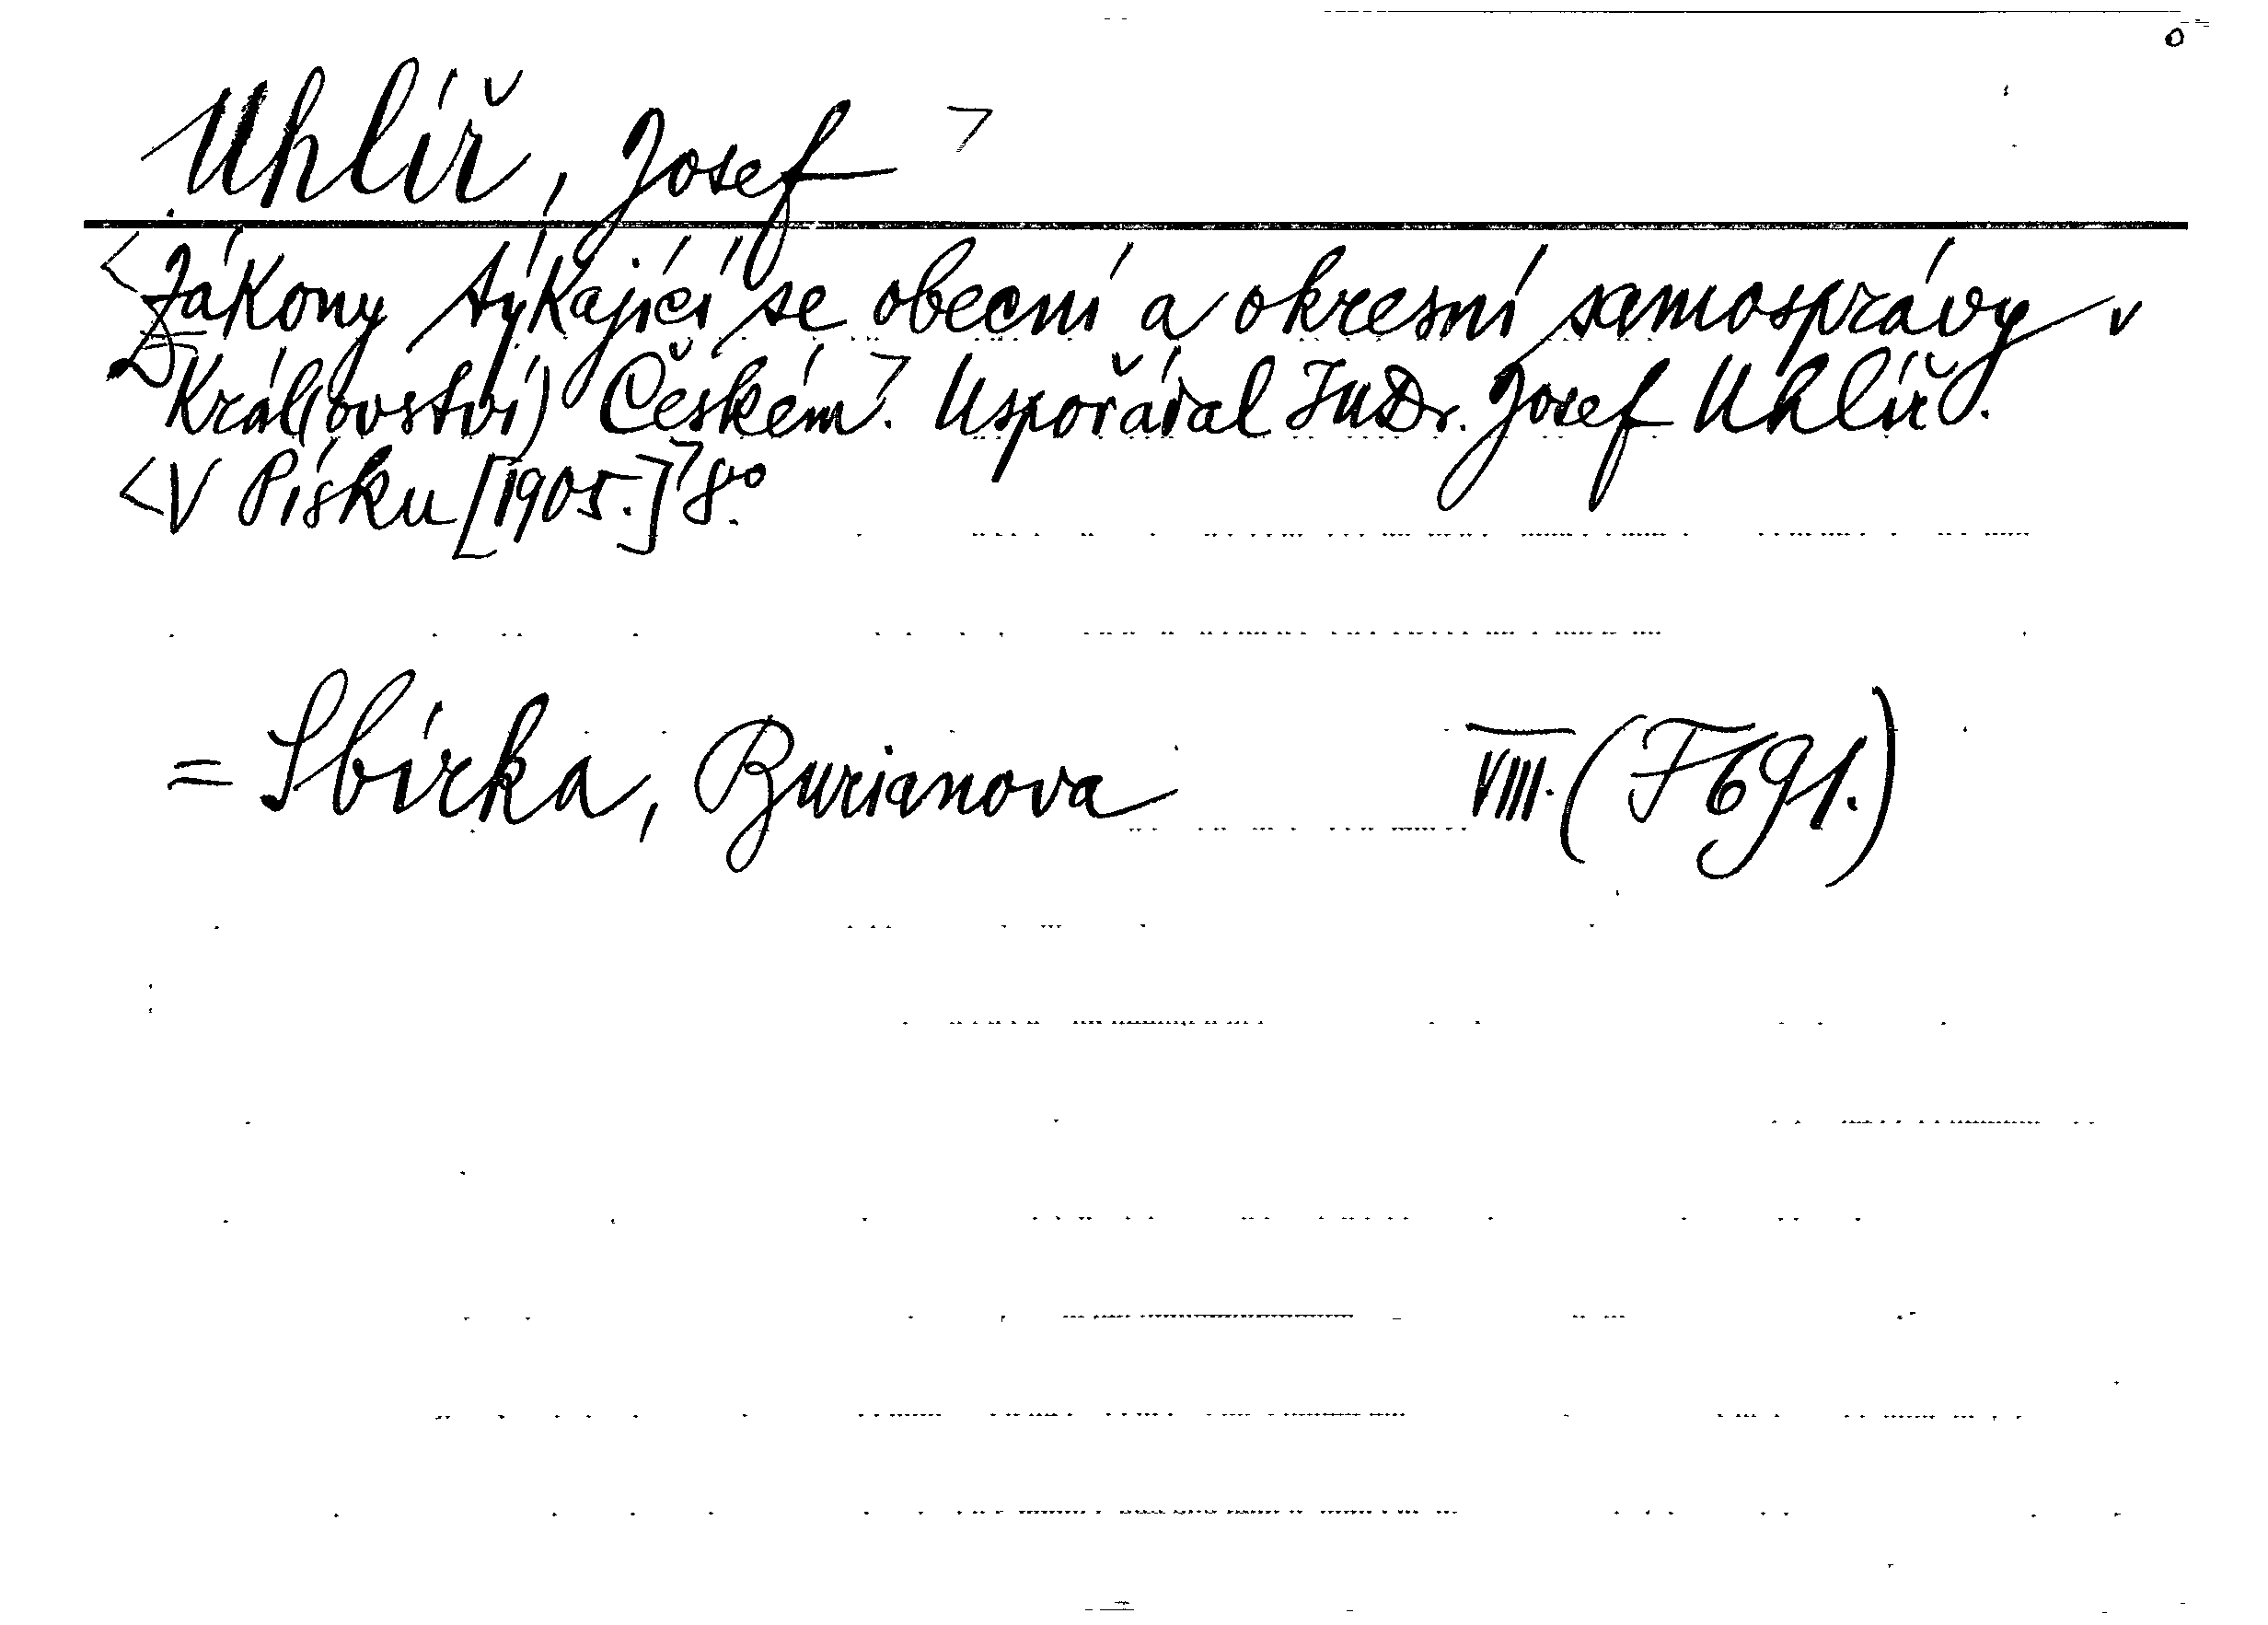 Uhlíř, Josef
Zákony týkající se obecní a okresní samosprávy v
Král(ovství) Českém. Uspořádal JUDr. Josef Uhlíř.
V Písku [1905.] 8°.
= Sbírka, Burianova VIII. (F 691.)